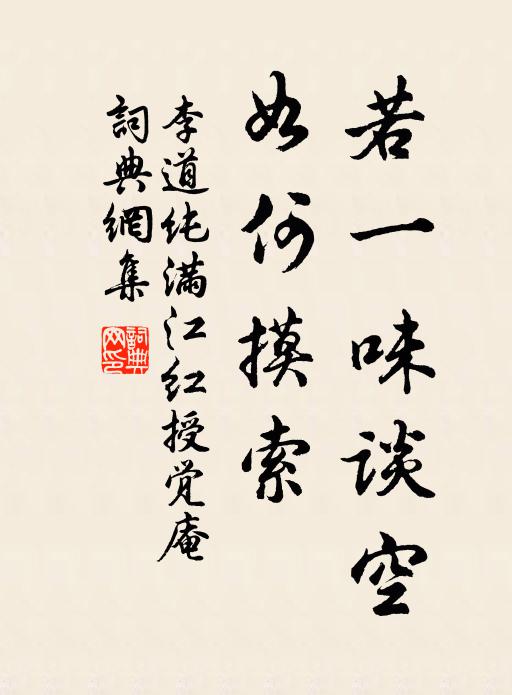 若一味谈空
如何摸索
李道纯满江红授觉庵
詞典網集
詞典网印